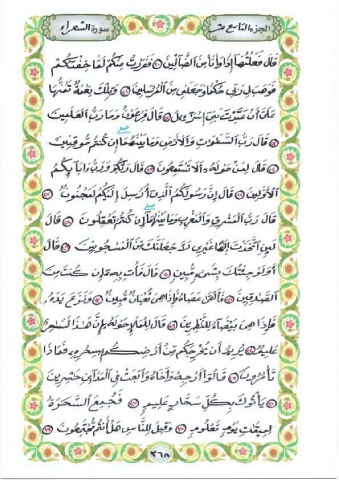 الجزء التاسع عشر
سورة الشعراء
قَالَ فَعَلْتُهَا إِذًا وَأَنَا مِنَ الضَّالِّينَ ۝ فَفَرَرْتُ مِنكُمْ لَمَّا خِفْتُكُمْ
فَوَهَبَ لِي رَبِّي حُكْمًا وَجَعَلَنِي مِنَ الْمُرْسَلِينَ ۝ وَتِلْكَ نِعْمَةٌ تَمُنُّهَا
عَلَيَّ أَنْ عَبَّدتَّ بَنِي إِسْرَائِيلَ ۝ قَالَ فِرْعَوْنُ وَمَا رَبُّ الْعَالَمِينَ
۝ قَالَ رَبُّ السَّمَوَاتِ وَالْأَرْضِ وَمَا بَيْنَهُمَا إِن كُنتُم مُّوقِنِينَ
۝ قَالَ لِمَنْ حَوْلَهُ أَلَا تَسْتَمِعُونَ ۝ قَالَ رَبُّكُمْ وَرَبُّ آبَائِكُمُ
الْأَوَّلِينَ ۝ قَالَ إِنَّ رَسُولَكُمُ الَّذِي أُرْسِلَ إِلَيْكُمْ لَمَجْنُونٌ ۝
قَالَ رَبُّ الْمَشْرِقِ وَالْمَغْرِبِ وَمَا بَيْنَهُمَا إِن كُنتُمْ تَعْقِلُونَ ۝ قَالَ
لَئِنِ اتَّخَذْتَ إِلَهًا غَيْرِي لَأَجْعَلَنَّكَ مِنَ الْمَسْجُونِينَ ۝ قَالَ
أَوَلَوْ جِئْتُكَ بِشَيْءٍ مُّبِينٍ ۝ قَالَ فَأْتِ بِهِ إِن كُنتَ مِنَ
الصَّادِقِينَ ۝ فَأَلْقَى عَصَاهُ فَإِذَا هِيَ ثُعْبَانٌ مُّبِينٌ ۝ وَنَزَعَ يَدَهُ
فَإِذَا هِيَ بَيْضَاءُ لِلنَّاظِرِينَ ۝ قَالَ لِلْمَلَإِ حَوْلَهُ إِنَّ هَذَا لَسَاحِرٌ
عَلِيمٌ ۝ يُرِيدُ أَن يُخْرِجَكُم مِّنْ أَرْضِكُم بِسِحْرِهِ فَمَاذَا
تَأْمُرُونَ ۝ قَالُوا أَرْجِهْ وَأَخَاهُ وَابْعَثْ فِي الْمَدَائِنِ حَاشِرِينَ
۝ يَأْتُوكَ بِكُلِّ سَحَّارٍ عَلِيمٍ ۝ فَجُمِعَ السَّحَرَةُ
لِمِيقَاتِ يَوْمٍ مَّعْلُومٍ ۝ وَقِيلَ لِلنَّاسِ هَلْ أَنتُم مُّجْتَمِعُونَ ۝
٣٦٨